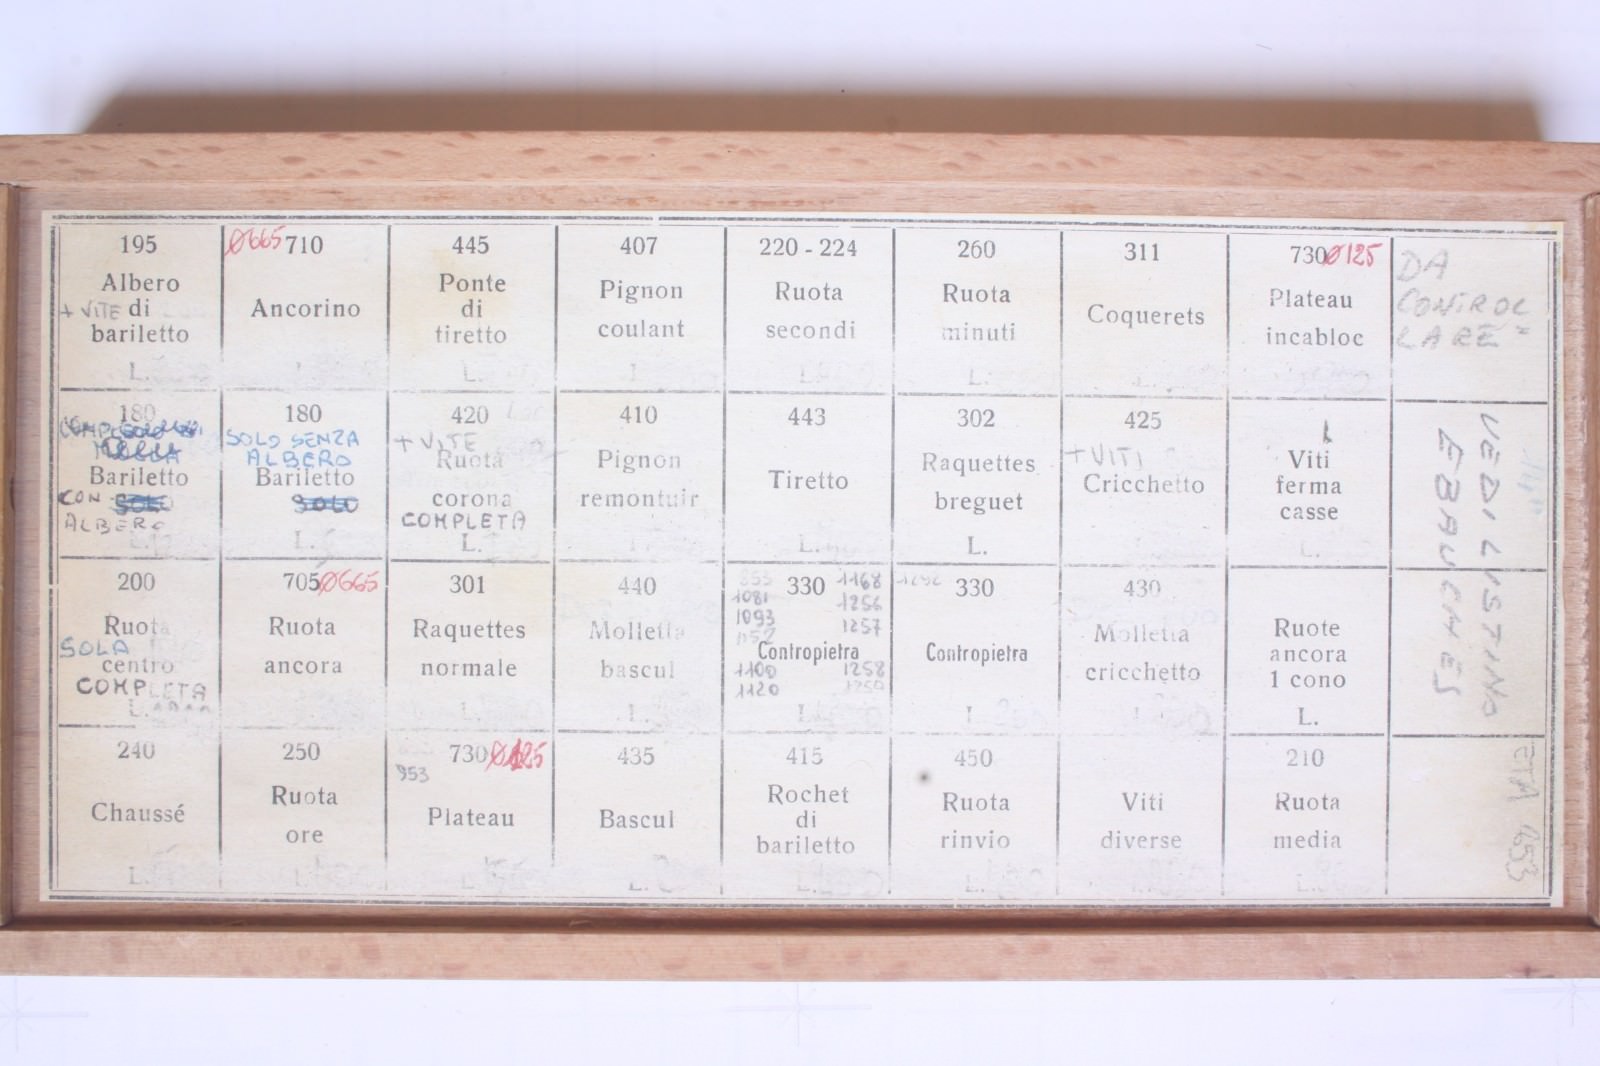 195
Albero
+ VITE di
bariletto
L.
Ø665 710
Ancorino
445
Ponte
di
tiretto
L.
407
Pignon
coulant
220 - 224
Ruota
secondi
L.
260
Ruota
minuti
L.
311
Coquerets
730 Ø125
Plateau
incabloc
DA
CONTROL
LARE"
180
Bariletto
CON SOLO
ALBERO
180
SOLO SENZA
ALBERO
Bariletto
SOLO
L.
420
+ VITE
Ruota
corona
COMPLETA
L.
410
Pignon
remontuir
443
Tiretto
L.
302
Raquettes
breguet
L.
425
+ VITI
Cricchetto
Viti
ferma
casse
L.
VEDI LISTINO
EBAUCHES
200
Ruota
SOLA
centro
COMPLETA
L.
705 Ø665
Ruota
ancora
301
Raquettes
normale
L.
440
Molletta
bascul
L.
330 1168
1081 1256
1093 1257
1152
Contropietra
1100 1258
1120
L.
1292
330
Contropietra
L.
430
Molletta
cricchetto
Ruote
ancora
1 cono
L.
240
Chaussé
L.
250
Ruota
ore
L.
730 Ø125
953
Plateau
L.
435
Bascul
L.
415
Rochet
di
bariletto
L.
450
Ruota
rinvio
L.
Viti
diverse
210
Ruota
media
L.
ETA 853